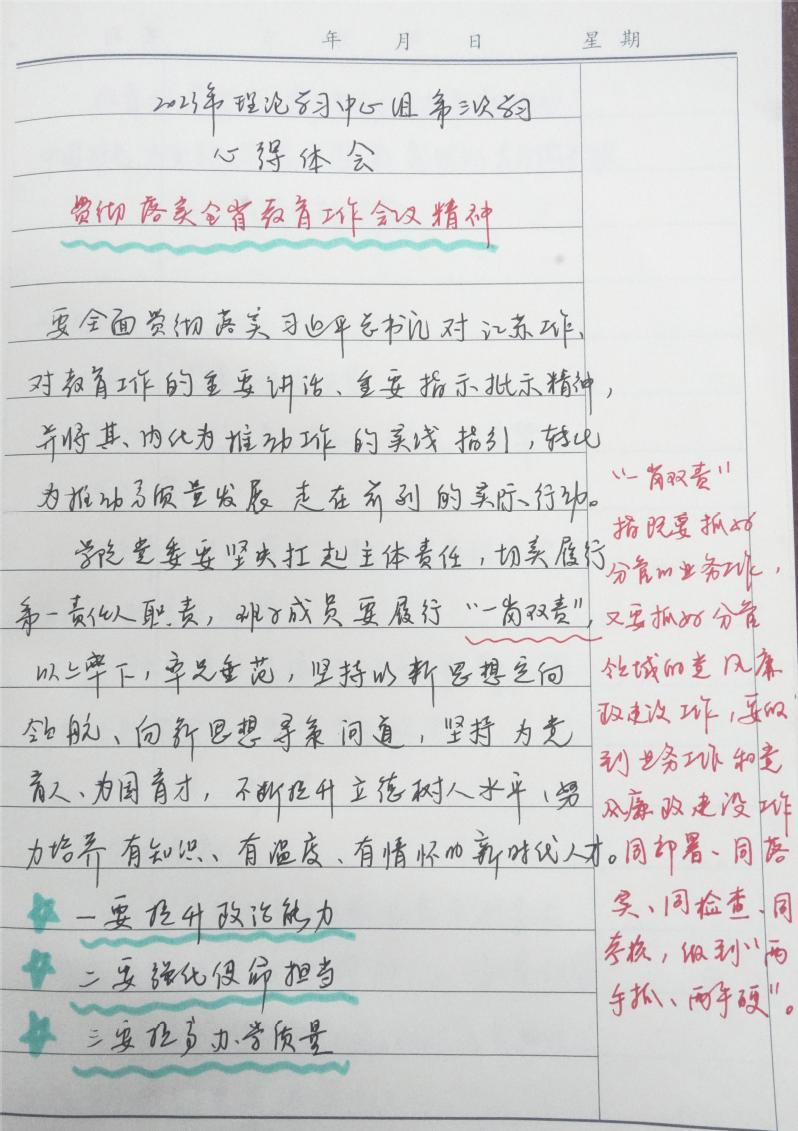 年 月 日 星期
2023年理论学习中心组第三次学习
心得体会
贯彻落实全省教育工作会议精神
要全面贯彻落实习近平总书记对江苏工作、
对教育工作的重要讲话、重要指示批示精神,
并将其、内化为推动工作的实践指引,转化
为推动高质量发展走在前列的实际行动。
学院党委要坚决扛起主体责任,切实履行
第一责任人职责,班子成员要履行“一岗双责”,
以上率下,率先垂范,坚持以新思想定向
领航、向新思想寻策问道,坚持为党
育人、为国育才,不断提升立德树人水平、努
力培养有知识、有温度、有情怀的新时代人才。
一要提升政治能力
二要强化使命担当
三要提高办学质量
“一岗双责”
指既要抓好
分管的业务工作,
又要抓好分管
领域的党风廉
政建设工作,要做
到业务工作和党
风廉政建设工作
同部署、同落
实、同检查、同
考核,做到“两
手抓、两手硬”。